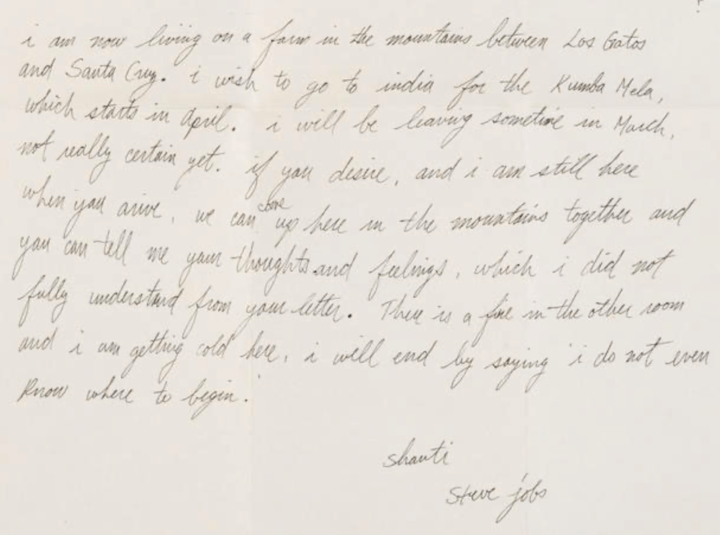 i am now living on a farm in the mountains between Los Gatos
and Santa Cruz. i wish to go to india for the Kumba Mela,
which starts in April. i will be leaving sometime in March,
not really certain yet. if you desire, and i am still here
when you arive, we can come up here in the mountains together and
you can tell me your thoughts and feelings, which i did not
fully understand from your letter. There is a fire in the other room
and i am getting cold here. i will end by saying 'i do not even
know where to begin.'
shanti
steve jobs